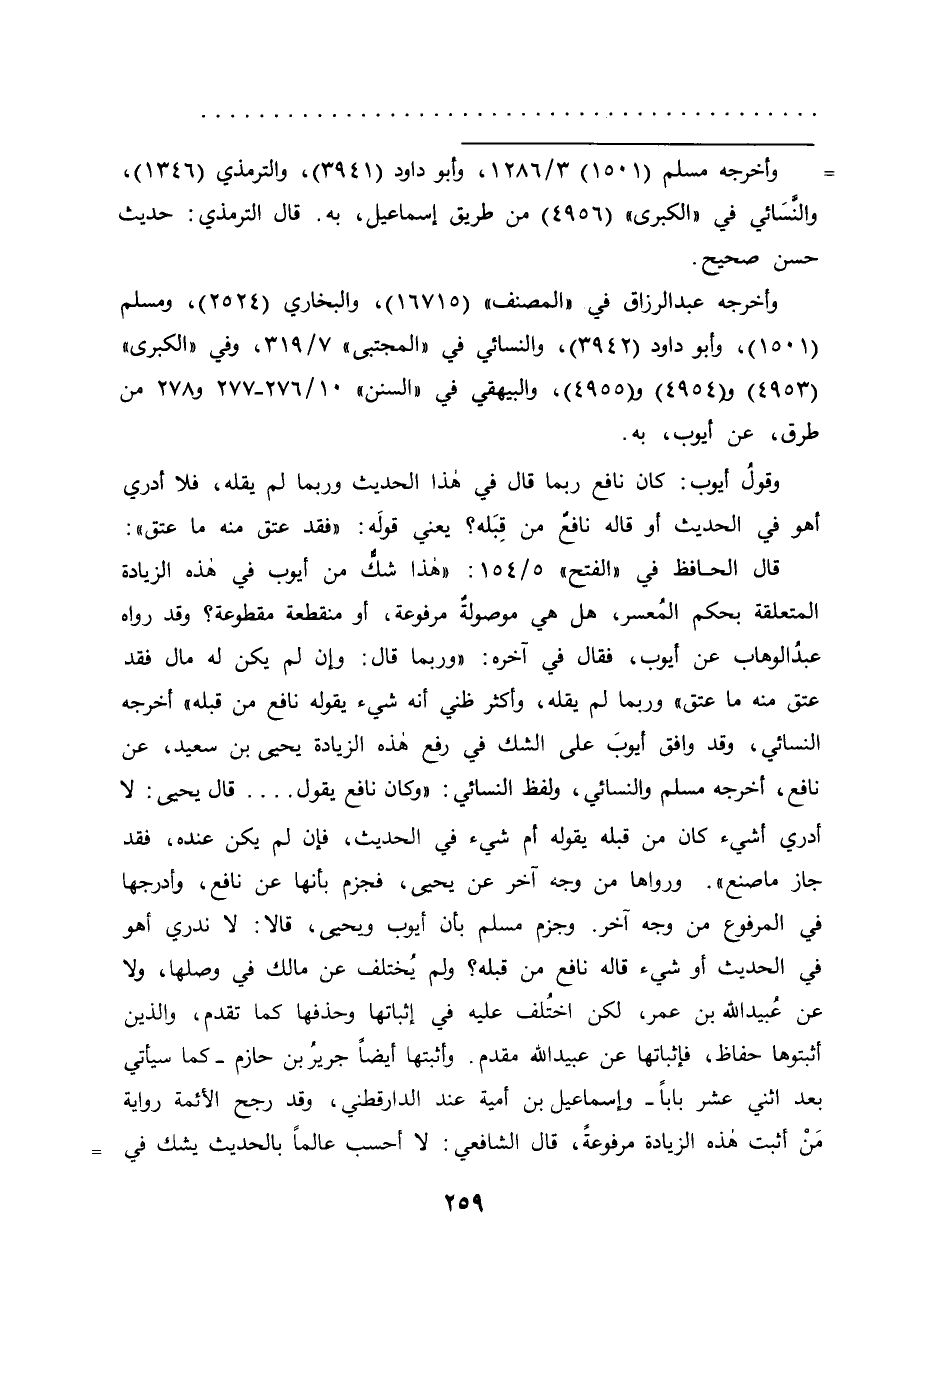 . . . . . . . . . . . . . . . . . . . . . . . . . . . . . . . . . . . . . . . . . . .
= وأخرجه مسلم (١٥٠١) ١٢٨٦/٣، وأبو داود (٣٩٤١)، والترمذي (١٣٤٦)،
والنَّسَائي في «الكبرى» (٤٩٥٦) من طريق إسماعيل، به. قال الترمذي: حديث
حسن صحيح.
وأخرجه عبدالرزاق في «المصنف» (١٦٧١٥)، والبخاري (٢٥٢٤)، ومسلم
(١٥٠١)، وأبو داود (٣٩٤٢)، والنسائي في «المجتبى» ٣١٩/٧، وفي «الكبرى»
(٤٩٥٣) و(٤٩٥٤) و(٤٩٥٥)، والبيهقي في «السنن» ٢٧٦/١٠-٢٧٧ و٢٧٨ من
طرق، عن أيوب، به.
وقولُ أيوب: كان نافع ربما قال في هٰذا الحديث وربما لم يقله، فلا أدري
أهو في الحديث أو قاله نافعٌ من قِبَله؟ يعني قولَه: «فقد عتق منه ما عتق»:
قال الحافظ في «الفتح» ١٥٤/٥: «هٰذا شكٌّ من أيوب في هٰذه الزيادة
المتعلقة بحكم المُعسر، هل هي موصولةٌ مرفوعة، أو منقطعة مقطوعة؟ وقد رواه
عبدُالوهاب عن أيوب، فقال في آخره: «وربما قال: وإن لم يكن له مال فقد
عتق منه ما عتق» وربما لم يقله، وأكثر ظني أنه شيء يقوله نافع من قبله» أخرجه
النسائي، وقد وافق أيوبَ على الشك في رفع هٰذه الزيادة يحيى بن سعيد، عن
نافع، أخرجه مسلم والنسائي، ولفظ النسائي: «وكان نافع يقول.... قال يحيى: لا
أدري أشيء كان من قبله يقوله أم شيء في الحديث، فإن لم يكن عنده، فقد
جاز ماصنع». ورواها من وجه آخر عن يحيى، فجزم بأنها عن نافع، وأدرجها
في المرفوع من وجه آخر. وجزم مسلم بأن أيوب ويحيى، قالا: لا ندري أهو
في الحديث أو شيء قاله نافع من قبله؟ ولم يُختلف عن مالك في وصلها، ولا
عن عُبيدالله بن عمر، لكن اختُلف عليه في إثباتها وحذفها كما تقدم، والذين
أثبتوها حفاظ، فإثباتها عن عبيدالله مقدم. وأثبتها أيضاً جريرُ بن حازم -كما سيأتي
بعد اثني عشر باباً- وإسماعيل بن أمية عند الدارقطني، وقد رجح الأئمة رواية
مَنْ أثبت هٰذه الزيادة مرفوعةً، قال الشافعي: لا أحسب عالماً بالحديث يشك في =
٢٥٩